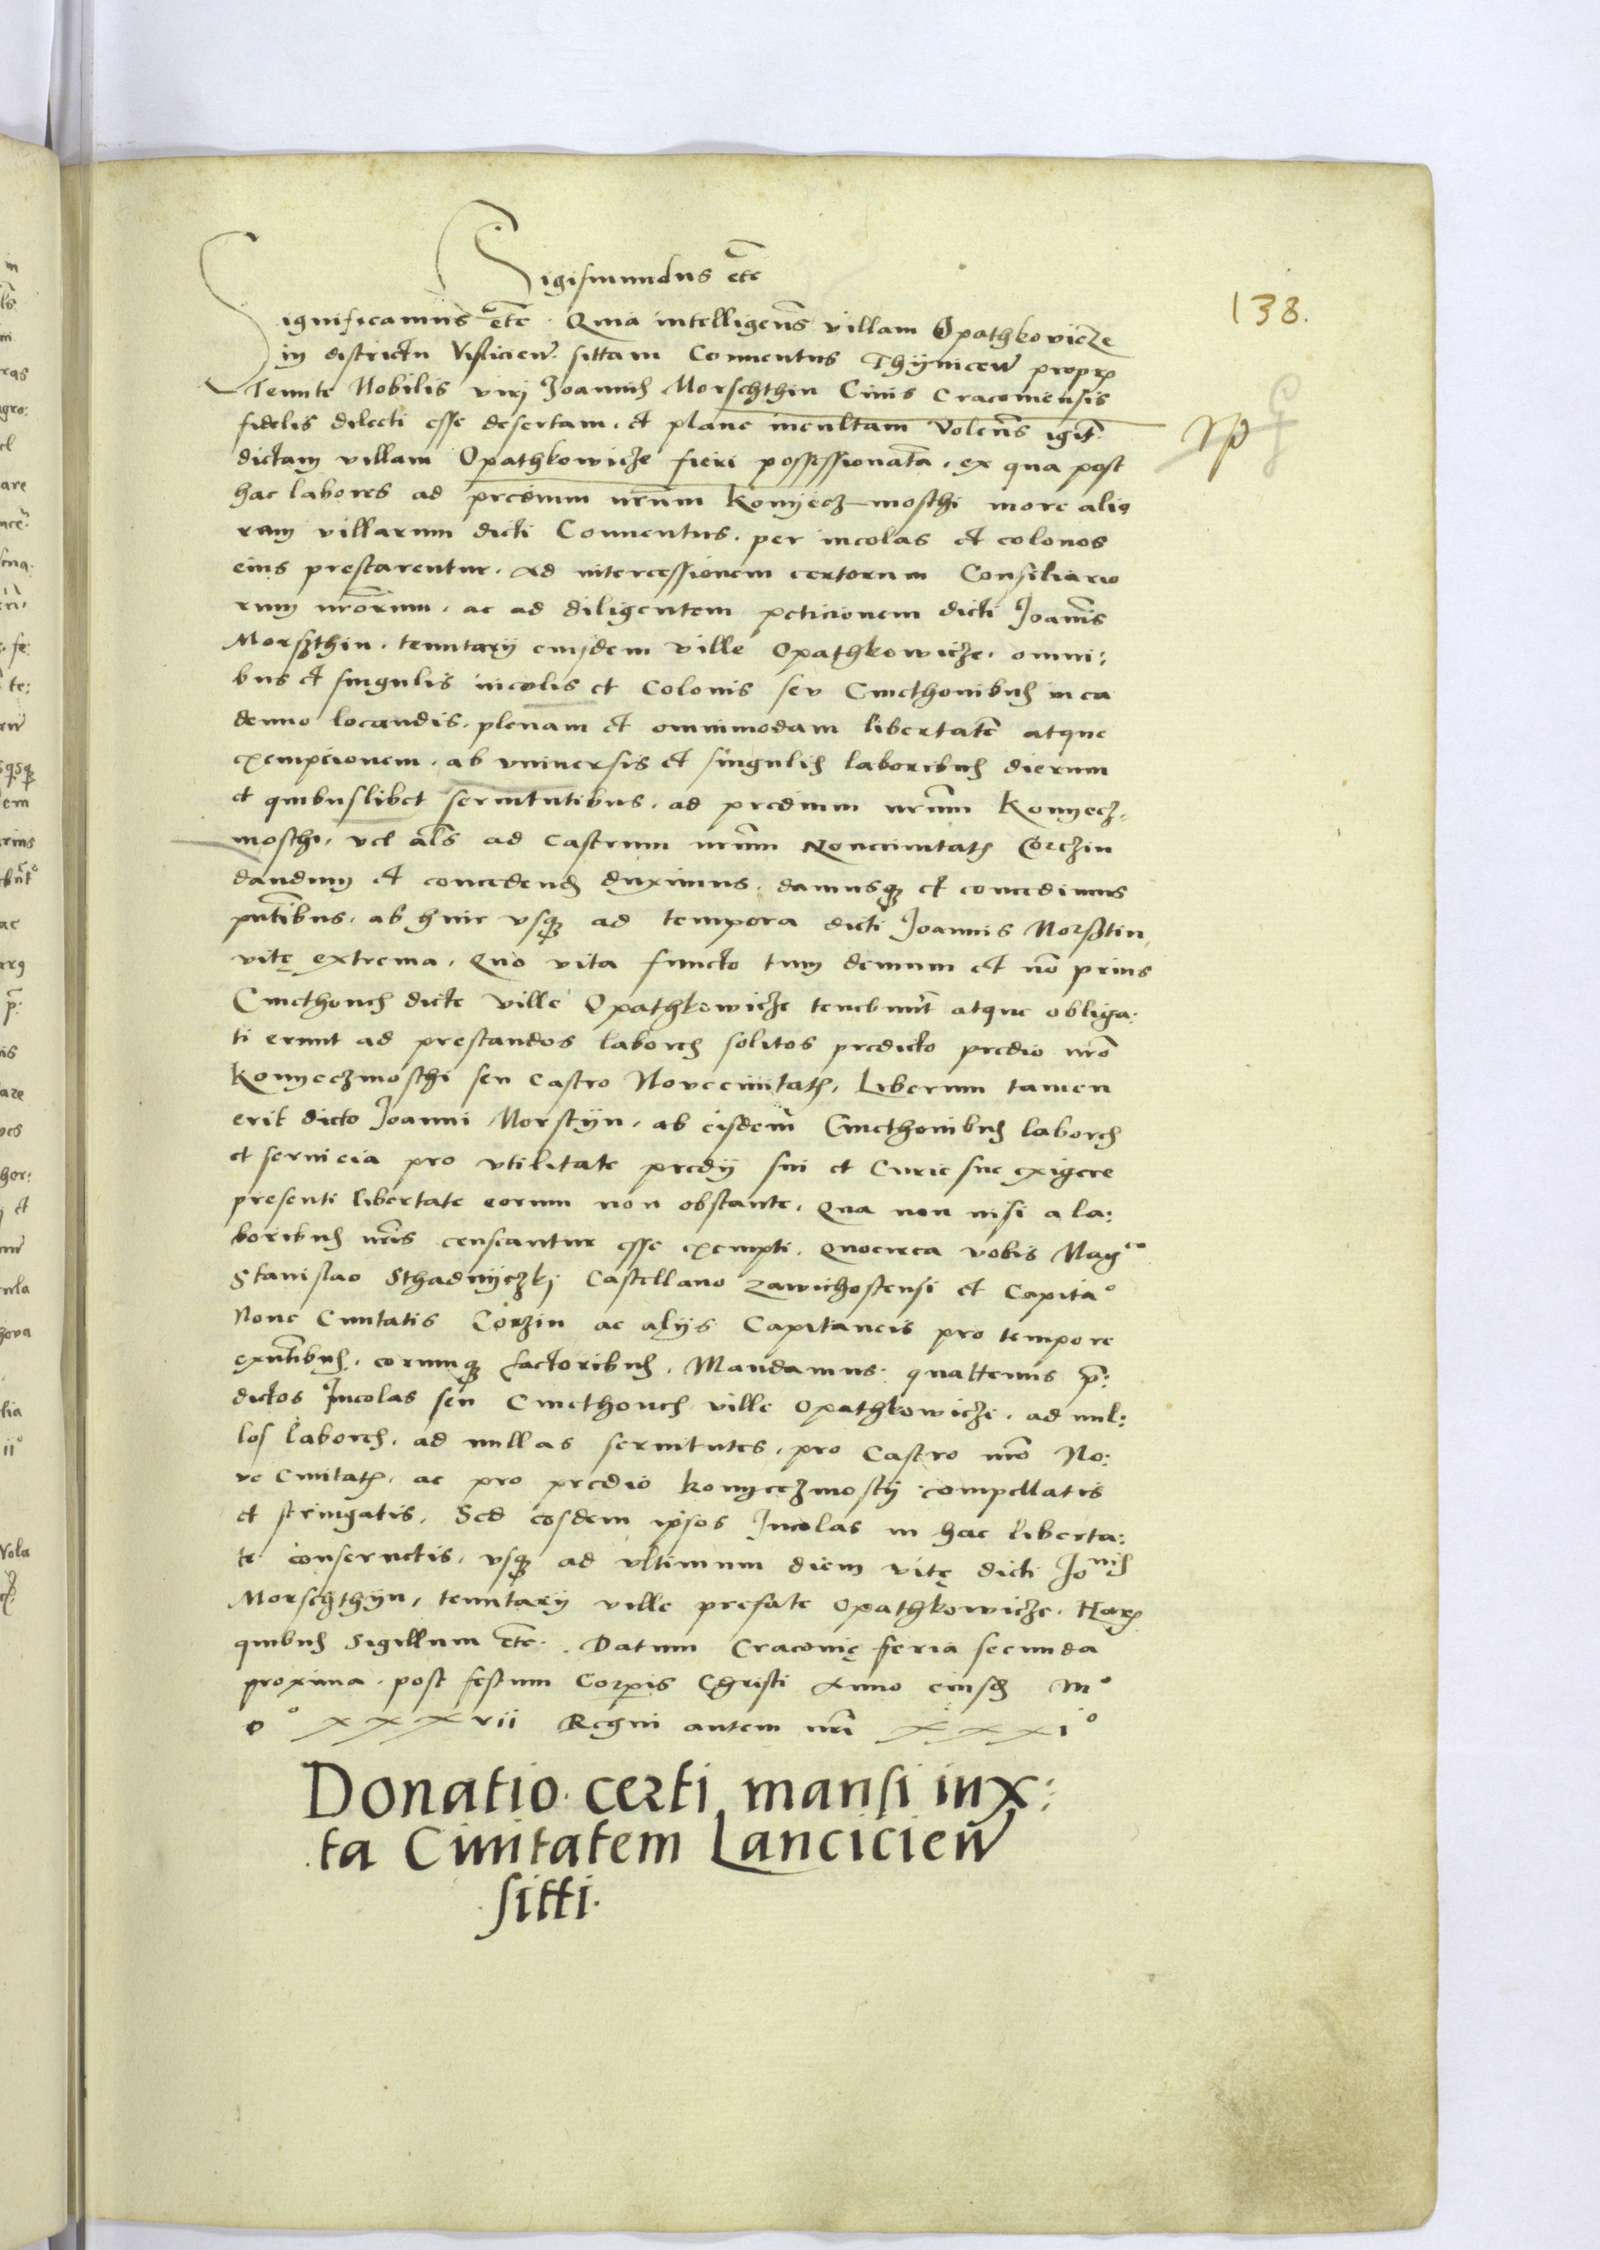 Sigismundus etc
138.
Significamus etc. Quia intelligens villam Opathkovicze
in districtu Vislicien. sittam Conuentus Thijnicen propr
Tenute Nobilis viri Joannis Morschthin Ciuis Cracouiensis
fidelis dilecti esse desertam, et plane incultam Volens igit
dictam villam Opathkowicze fieri possessionata, ex qua post
hac labores ad predium nrum Konyecz-moschi more alio
rum villarum dicti Conuentus, per incolas et colonos
eius prestarentur. Ad intercessionem certorum Consiliario
rum nrorum, ac ad diligentem peticionem dicti Joannis
Morszthin, tenutarij eiusdem ville Opathkowicze, omni:
bus et singulis incolis et Colonis seu Cmethonibus in ea
denuo locandis, plenam et omnimodam libertate atque
exempcionem, ab vniuersis et singulis laboribus dierum
et quibuslibet seruitutibus, ad predium nrum Konyecz-
moschi, vel als ad Castrum nrum Nouecivitatis Corczin
dandum et concedend duximus, damusq et concedimus
pntibus, ab hinc vsq ad tempora dicti Joannis Morstin,
vitę extrema, Quo vita functo tum demum et no prius
Cmethones dicte ville Opathkowicze tenebunt atque obliga:
ti erunt ad prestandos labores solitos predicto predio nro
Konyeczmoschi seu Castro Nouecivitatis, Liberum tamen
erit dicto Joanni Morstijn, ab eisdem Cmethonibus labores
et seruicia pro vtilitate predij sui et Curie sue exigere
presenti libertate eorum non obstante, Qua non nisi a la:
boribus nris censeantur esse exempti. Quocirca vobis Mag^co
Stanislao Sthadnijczkj Castellano Zawichostensi et Capita^o
Noue Ciuitatis Corzin ac alijs Capitaneis pro tempore
exntibus, eorumq factoribus, Mandamus: quattenus p:
dictos Incolas seu Cmethones ville Opathkowicze, ad nul:
los labores, ad nullas seruitutes, pro Castro nro No:
ve Ciuitatis, ac pro predio Konyeczmostij compellatis
et stringatis, Sed eosdem ipsos Incolas in hac liberta:
te conseruetis, vsq ad vltimum diem vitę dicti Jo^nis
Morschthijn, tenutarij ville prefate Opathkowicze. Harum
quibus Sigillum etc. Datum Cracouię feria secunda
proxima post festum Corpis Christi Anno eiusd M^o
D^o XXXVII Regni autem nri XXXI^o
Donatio certi mansi iux:
ta Ciuitatem Lancicien
sitti.